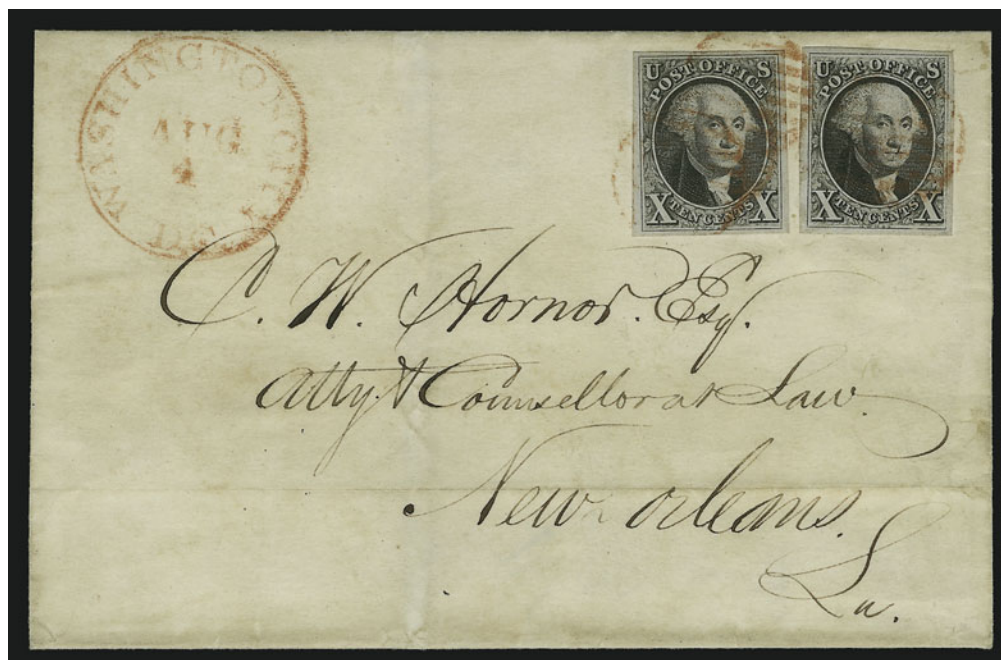 WASHINGTON CITY
AUG
4
U S
POST OFFICE
X TEN CENTS X
U S
POST OFFICE
X TEN CENTS X
C. W. Hornor. Esq.
Atty & Counsellor at Law.
New Orleans.
La.